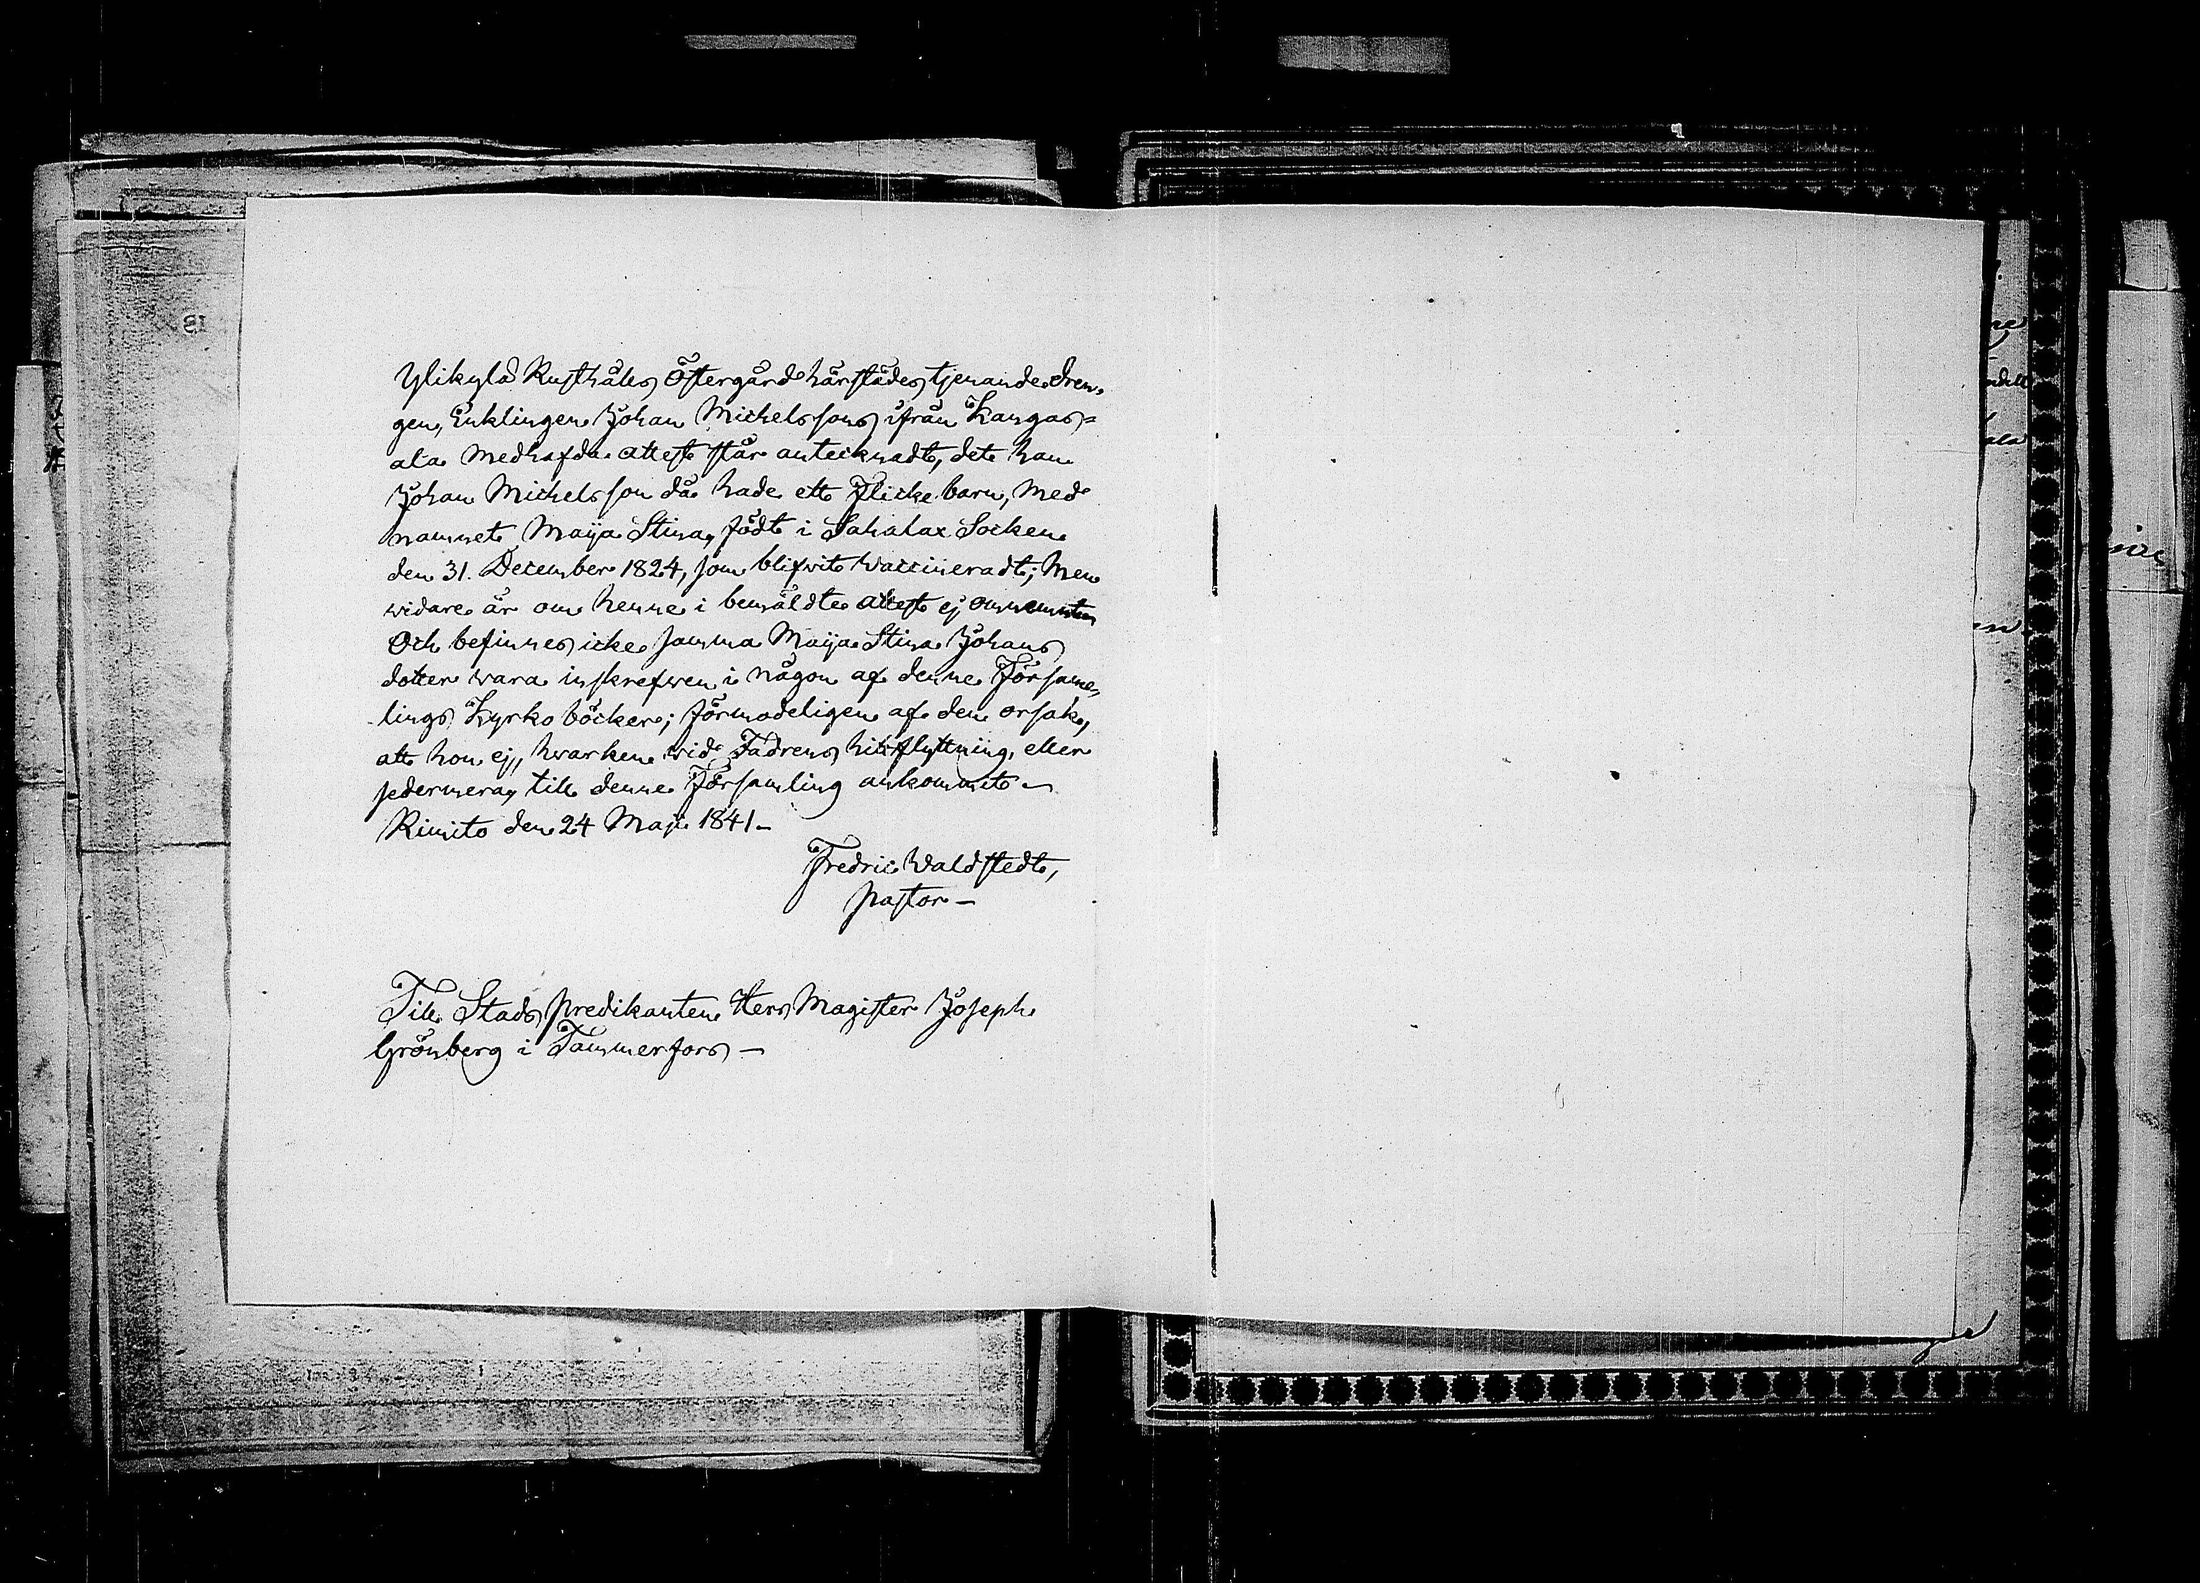 Ylikylä Rusthålls Östergård härstädes tjenande dren-
gen, Enklingen Johan Michelssons ifrån Kangas=
ala Medhafda attest står antecknadt, det han
Johan Michelsson då hade ett Flicke barn, Med
namnet Maija Stina, födt i Sahalax Socken
den 31. December 1824, som blifwit Waccineradt; Men
widare är om henne i bemäldte attest ej omnemnt
Och befinnes icke samma Maija Stina Johans
dotter wara inskrefwen i någon af denne Försam-
lings Kyrko böcker; förmodeligen af den orsak,
att hon ej, hwarken wid Fadrens hitflyttning, eller
sedermera, till denne Församling ankommit
Rimito den 24 Maji 1841
Fredric Waldstedt,
Pastor
Till Stads predikanten Herr Magister Joseph
Grönberg i Tammerfors